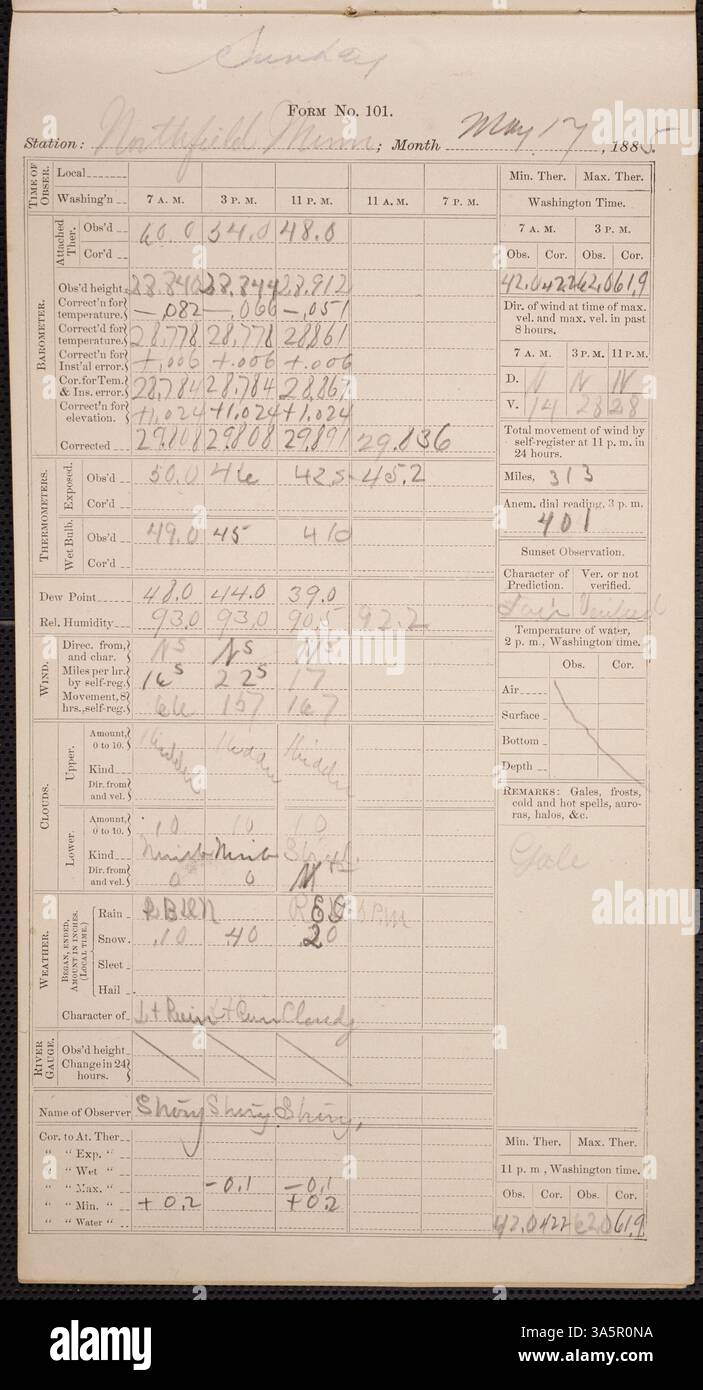 Sunday
FORM NO. 101.
Station: Northfield Minn; Month May 17, 1885.
TIME OF OBSER. Local
Washing'n 7 A. M. 3 P. M. 11 P. M. 11 A. M. 7 P. M.
Min. Ther. Max. Ther.
Washington Time.
7 A. M. 3 P. M.
Obs. Cor. Obs. Cor.
42.0 42.2 62.0 61.9
Attached Ther. Obs'd 60.0 54.0 48.0
Cor'd
BAROMETER.
Obs'd height 28.840 28.844 28.912
Correct'n for temperature. -.082 -.066 -.051
Correct'd for temperature. 28,778 28,778 28,861
Correct'n for Inst'al error. +,006 +.006 +.006
Cor. for Tem. & Ins. error. 28,784 28,784 28,867
Correct'n for elevation. +1,024 +1,024 +1,024
Corrected 29.808 29.808 29.891 29.836
Dir. of wind at time of max. vel. and max. vel. in past 8 hours.
7 A. M. 3 P. M. 11 P. M.
D. N N N
V. 14 28 28
Total movement of wind by self-register at 11 p. m. in 24 hours.
Miles, 313
Anem. dial reading, 3 p. m.
401
THERMOMETERS.
Exposed. Obs'd 50.0 46 42.5 45.2
Cor'd
Wet Bulb. Obs'd 49.0 45 410
Cor'd
Sunset Observation.
Character of Prediction. Ver. or not verified.
Fair Verified
Dew Point 48.0 44.0 39.0
Rel. Humidity 93.0 93.0 90.5 92.2
Temperature of water, 2 p. m., Washington time.
Obs. Cor.
Air
Surface
Bottom
Depth
WIND.
Direc. from, and char. NS NS NS
Miles per hr. by self-reg. 16 5 22 5 17
Movement, 8 hrs., self-reg. 66 157 167
CLOUDS.
Upper. Amount, 0 to 10. Hidden Hidden Hidden
Kind
Dir. from and vel.
Lower. Amount, 0 to 10. 10 10 10
Kind Nimb Nimb
Dir. from and vel. 0 0
REMARKS: Gales, frosts, cold and hot spells, auroras, halos, &c.
Gale
WEATHER.
BEGAN, ENDED, AMOUNT IN INCHES. (LOCAL TIME.)
Rain
Snow .10 40 20
Sleet
Hail
Character of Lt Rain Lt Rain Cloudy
RIVER GAUGE.
Obs'd height
Change in 24 hours.
Name of Observer
Cor. to At. Ther
" " Exp. "
" " Wet "
" " Max. " -0.1 -0.1
" " Min. " +0.2 +0.2
" " Water "
Min. Ther. Max. Ther.
11 p. m., Washington time.
Obs. Cor. Obs. Cor.
42.0 42.2 62.0 61.9
alamy
Image ID: 3A5R0NA
www.alamy.com